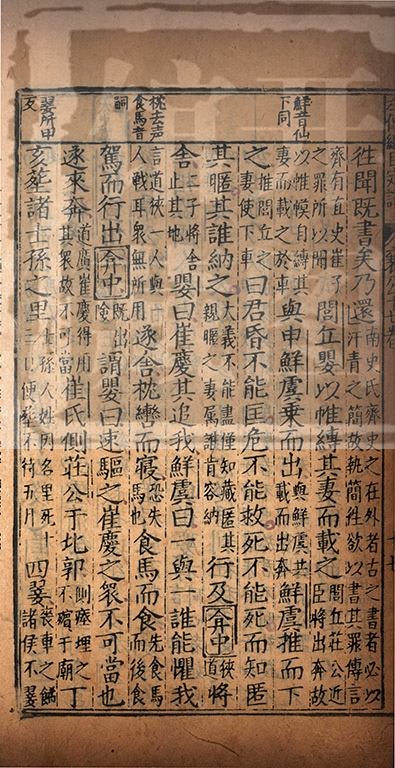 往聞既書矣乃還南史氏齊史之在外者古之書者必以
汗青之簡故執簡往欲以書其罪傳言
齊有直史崔
之罪所以聞
閭丘嬰以帷縛其妻而載之閭丘莊公近
臣將出奔故
鮮音仙
下同
以帷幔自縛其
妻而載之於車
與申鮮虞乘而出與鮮虞共
載而出奔
鮮虞推而下
之推閭丘之
妻使下車
曰君昏不能匡危不能救死不能死而知匿
其暱其誰納之大義不能盡僅知藏匿其
親暱之妻屬誰肯容納
行及弇中狹
道
將
舍二子將舍
止其地
嬰曰崔慶其追我鮮虞曰一與一誰能懼我
枕去声
食馬音
嗣
言道狹一人與一
人戰耳衆無所用
遂舍枕轡而寢恐失
馬也
食馬而食先食馬
而後食
駕而行出弇中既出
險
謂嬰曰速驅之崔慶之衆不可當也
遂來奔道廣崔慶得用
其衆故不可當
崔氏側莊公于北郭側瘞埋之
不殯于廟
丁
翣所甲
反
亥葬諸士孫之里士孫人姓因名里死十
三日便葬不待五月
四翣喪車之飾
諸侯六翣